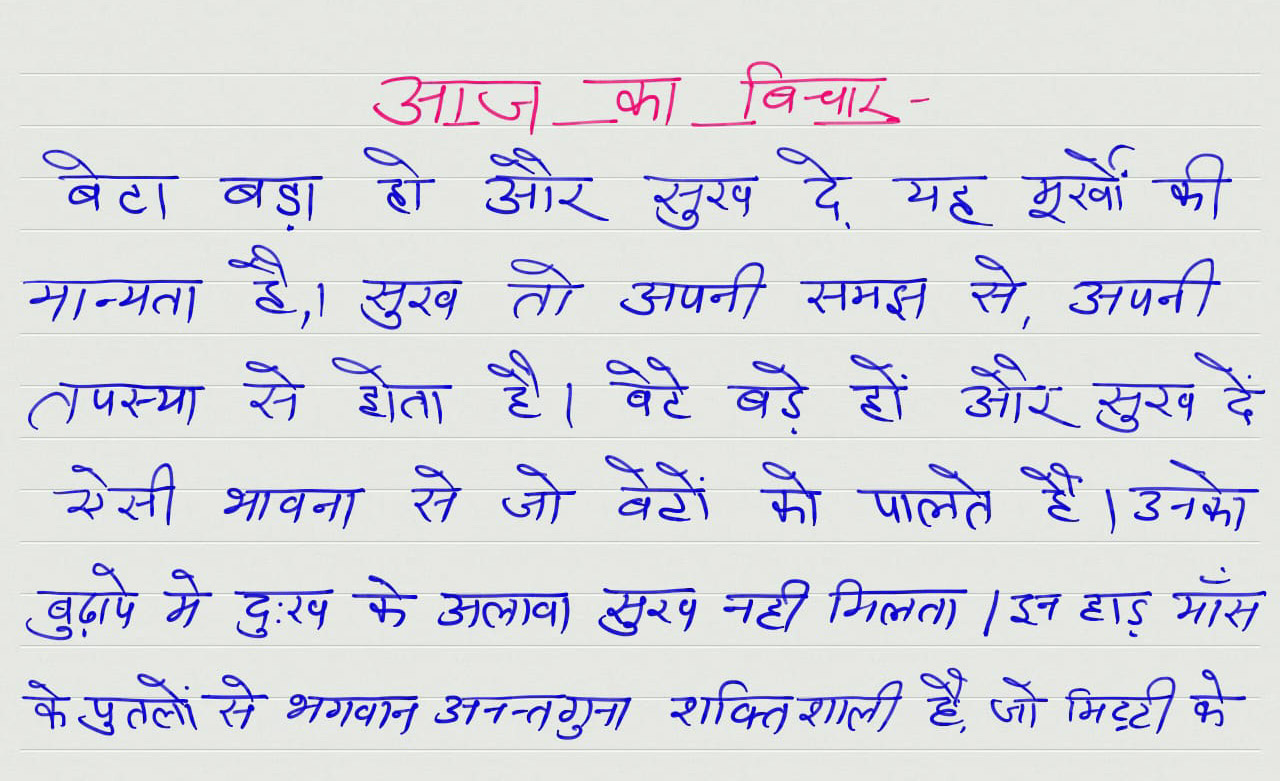 आज का विचार -
बेटा बड़ा हो और सुख दे, यह मूर्खों की
मान्यता है,। सुख तो अपनी समझ से, अपनी
तपस्या से होता है। बेटे बड़े हों और सुख दें
ऐसी भावना से जो बेटों को पालते हैं। उनको
बुढ़ापे मे दुःख के अलावा सुख नही मिलता। इन हाड़ माँस
के पुतलों से भगवान अनन्तगुना शक्तिशाली है, जो मिट्टी के